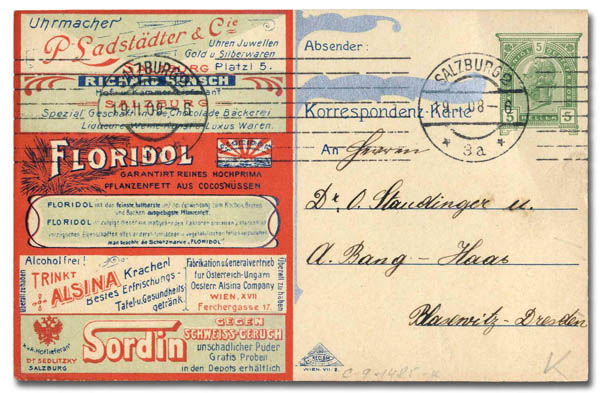 Uhrmacher
P. Ladstädter & Cie
Uhren Juwellen
Gold u. Silberwaren
SALZBURG Platzl 5.
Hof- u. Kammerlieferant
SALZBURG
Spezial Geschäft Chocolade Bäckerei
Luxus Waren.
FLORIDOL
GARANTIRT REINES HOCHPRIMA
PFLANZENFETT AUS COCOSNÜSSEN
FLORIDOL ist das feinste, haltbarste
und Backen ausgiebigste Pflanzenfett.
FLORIDOL ist
man beachte die Schutzmarke „FLORIDOL”
Alcohol frei!
TRINKT
ALSINA
Kracherl
Bestes Erfrischungs-
Tafel u. Gesundheits
getränk
Überall zu haben
Fabrikation u. Generalvertrieb
für Österreich-Ungarn
Oesterr. Alsina Company
WIEN, XVII
Ferchergasse 17.
Überall zu haben
k.u.k. Hoflieferant
Dr. SEDLITZKY
SALZBURG
Sordin
GEGEN
SCHWEISS-GERUCH
unschädlicher Puder
Gratis Proben
in den Depots erhältlich
Absender:
SALZBURG 2
08-6
* 3a *
5
5 HELLER 5
Korrespondenz-Karte
An Herren
Dr. O. Staudinger u.
A. Bang-Haas
Blasewitz-Dresden
RECLAM
WIEN. VII/2
K